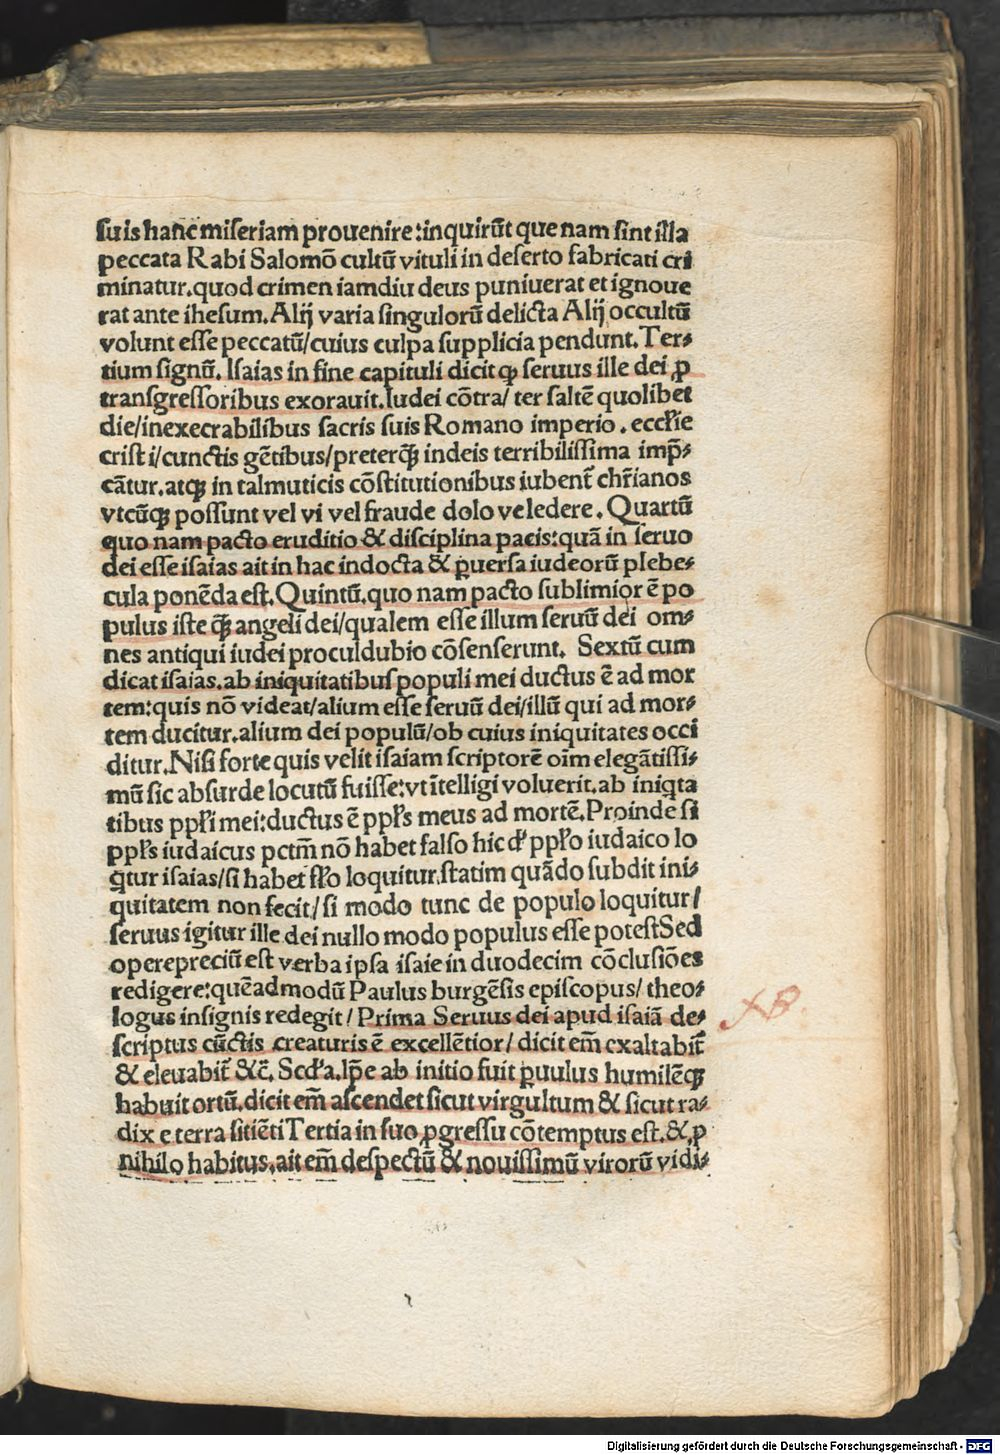 suis hanc miseriam prouenire:inquirūt que nam sint illa
peccata Rabi Salomō cultū vituli in deserto fabricati cri
minatur.quod crimen iamdiu deus puniuerat et ignoue
rat ante ihesum.Alij varia singulorū delicta Alij occultū
volunt esse peccatū/cuius culpa supplicia pendunt.Ter⸗
tium signū.Isaias in fine capituli dicit qꝫ seruus ille dei ꝓ
transgressoribus exorauit.Iudei cōtra/ ter saltē quolibet
die/inexecrabilibus sacris suis Romano imperio.eccľie
cristi/cunctis gētibus/preterqꝫ̄ indeis terribilissima imp̄⸗
cātur.atqꝫ in talmuticis cōstitutionibus iubent̄ chr̄ianos
vtcūqꝫ possunt vel vi vel fraude dolo veledere.Quartū
quo nam pacto eruditio & disciplina pacis:quā in seruo
dei esse isaias ait in hac indocta & ꝑuersa iudeorū plebe⸗
cula ponēda est.Quintū.quo nam pacto sublimior ē po
pulus iste qꝫ̄ angeli dei/qualem esse illum seruū dei om⸗
nes antiqui iudei proculdubio cōsenserunt. Sextū cum
dicat isaias.ab iniquitatibus populi mei ductus ē ad mor
tem:quis nō videat/alium esse seruū dei/illū qui ad mor⸗
tem ducitur.alium dei populū/ob cuius iniquitates occi
ditur.Nisi forte quis velit isaiam scriptorē oīm elegātissi⸗
mū sic absurde locutū fuisse:vt ītelligi voluerit.ab iniqta
tibus ppľi mei:ductus ē ppľs meus ad mortē.Proinde si
ppľs iudaicus pctm̄ nō habet falso hic d' ppľo iudaico lo
qtur isaias/si habet fľo loquitur.statim quādo subdit ini⸗
quitatem non fecit/si modo tunc de populo loquitur/
seruus igitur ille dei nullo modo populus esse potestSed
operepreciū est verba ipsa isaie in duodecim cōclusiōes
redigere:quēadmodū Paulus burgēsis episcopus/ theo⸗
logus insignis redegit/Prima Seruus dei apud isaiā de⸗
scriptus cūctis creaturis ē excellētior/ dicit em̄ exaltabit̄
& eleuabit̄ &c̄. Scd'a.Ip̄e ab initio fuit ꝑuulus humilēqꝫ
habuit ortū.dicit em̄ ascendet sicut virgultum & sicut ra⸗
dix e terra sitiēti Tertia in suo ꝓgressu cōtemptus est.& ꝓ
nihilo habitus,ait em̄ despectū & nouissimū virorū vidi⸗
Digitalisierung gefördert durch die Deutsche Forschungsgemeinschaft - DFG